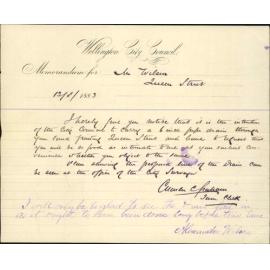 Wellington City Council.
Memorandum for Mr Wilson
Queen Street
12/2/1883
I hereby give you notice that it is the intention
of the City Council to carry a 6 inch pipe drain through
your land fronting Queen Street and I have to request that
you will be so good as intimate to me at your earliest
convenience whether you object to the same.
Plan showing the proposed line of the drain can
be seen at the office of the City Surveyor
Charles C Graham
Town Clerk
I will only be too glad to see the Drain
it ought to have been done long before this time
Alexander Wilson